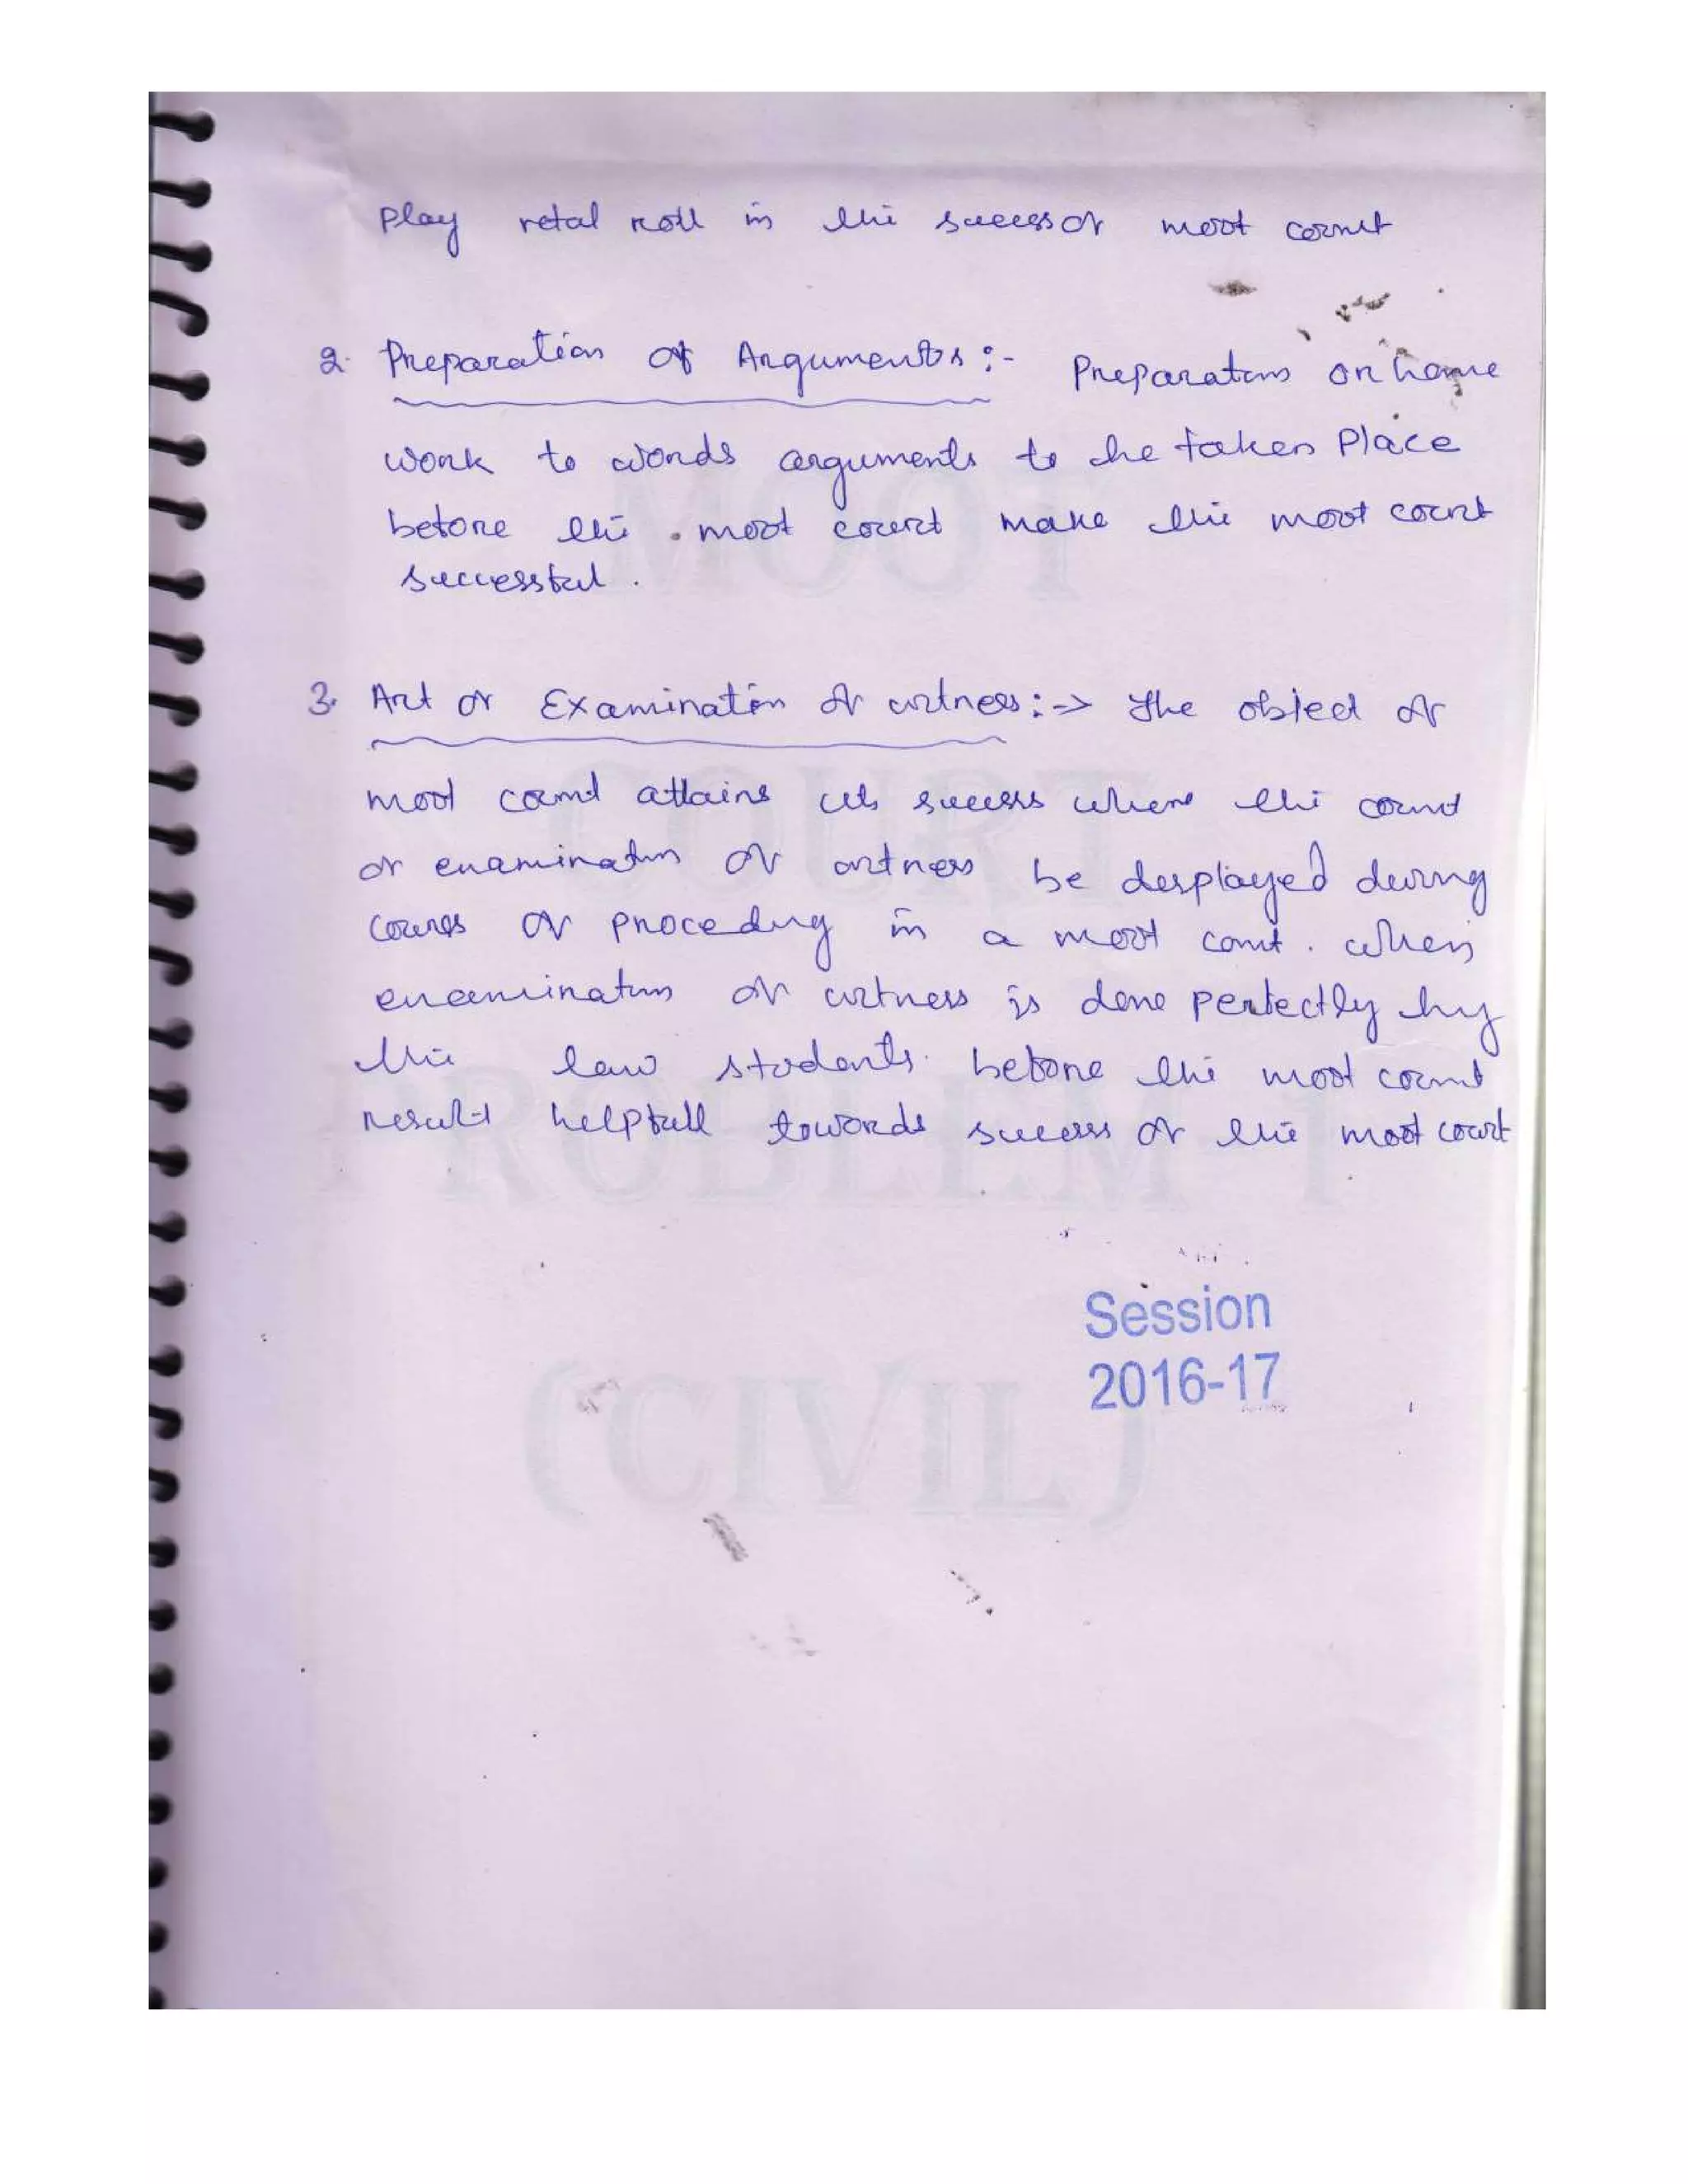 Play vital roll in the success of moot court
2. Preparation of Arguments :-
Preparation or home
work to words arguments to be taken Place
before the moot court make the moot court
successful.
3. Art of Examination of witness :-> The object of
moot court attains its success where the court
of examination of witness be displayed during
courses of proceding in a moot court. when
examination of witness is done perfectly by
the law students before the moot court
result helpfull towords success of the moot court
Session
2016-17
MOOT
COURT
PROBLEM-1
(CIVIL)